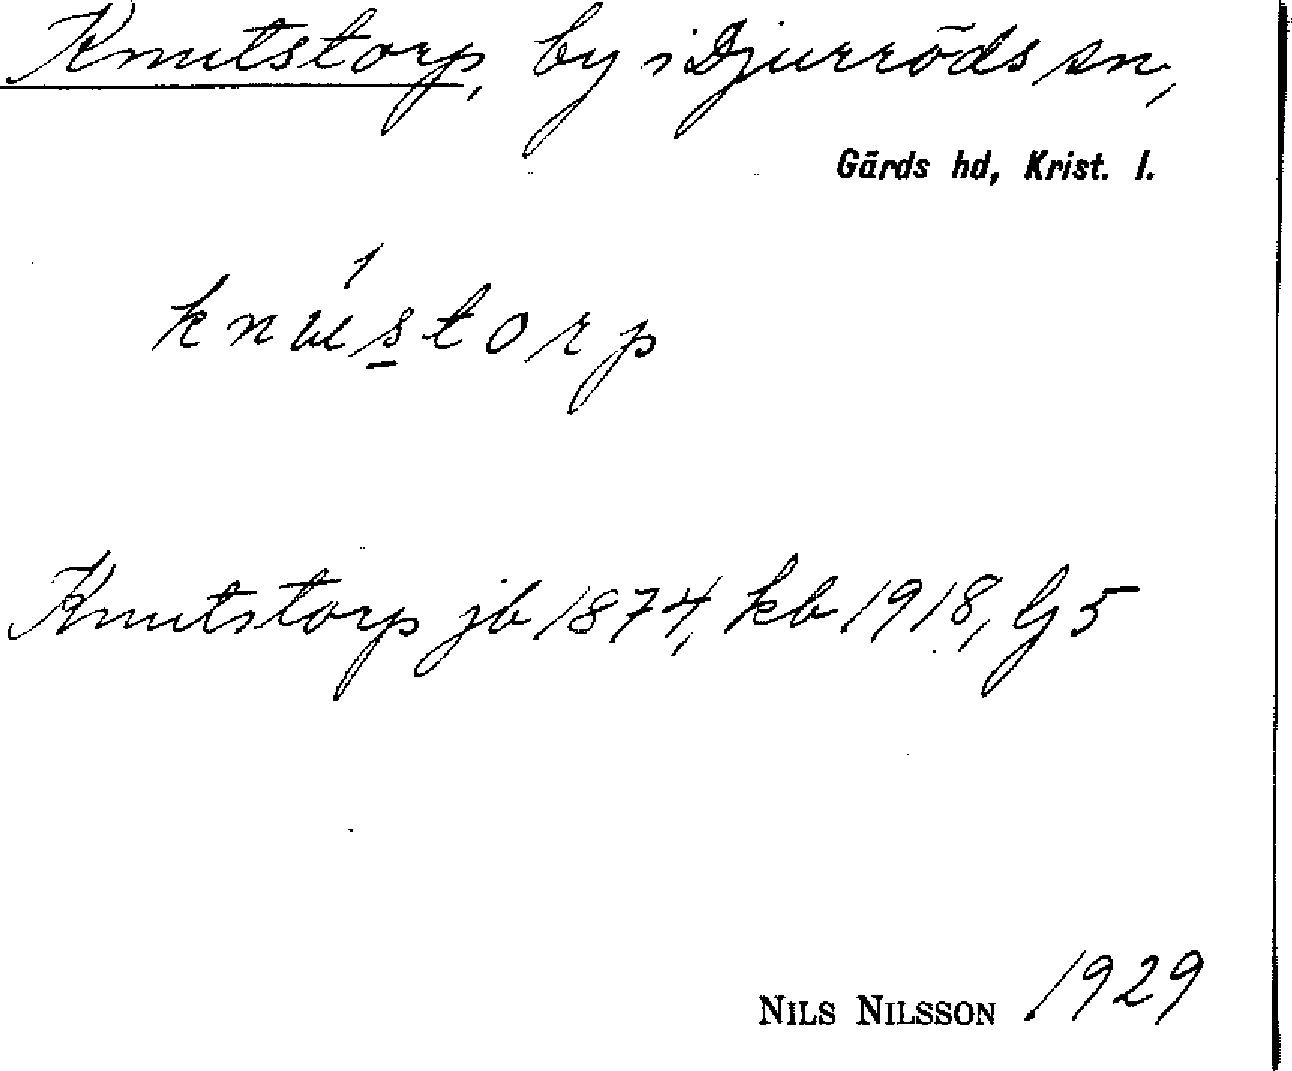 Knutstorp, by i Djurröds sn,
Gärds hd, Krist. l.
knústorp
Knutstorp jb 1874, kb 1918, G5
NILS NILSSON 1929